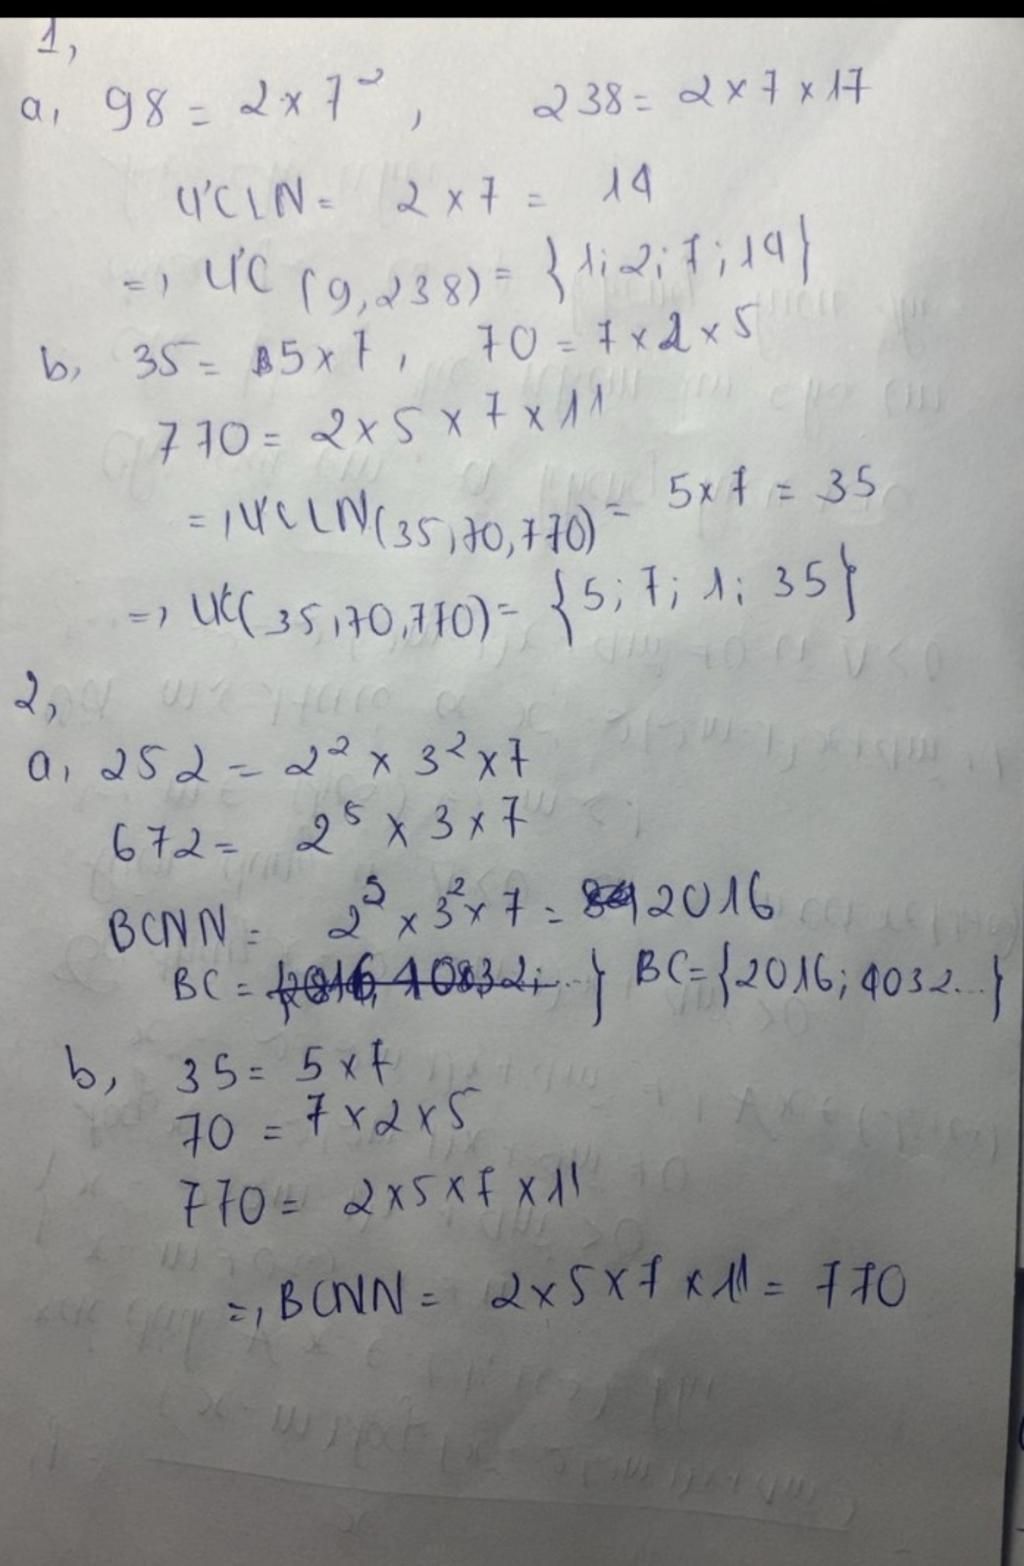 1,
a, 98 = 2 × 7², 238 = 2 × 7 × 17
ƯCLN = 2 × 7 = 14
=> ƯC (9, 238) = {1; 2; 7; 14}
b, 35 = 5 × 7, 70 = 7 × 2 × 5
770 = 2 × 5 × 7 × 11
=> ƯCLN(35,70,770) = 5 × 7 = 35
=> ƯC(35,70,770) = {5; 7; 1; 35}
2,
a, 252 = 2² × 3² × 7
672 = 2⁵ × 3 × 7
BCNN = 2⁵ × 3² × 7 = 2016
BC = {2016; 4032...}
b, 35 = 5 × 7
70 = 7 × 2 × 5
770 = 2 × 5 × 7 × 11
=> BCNN = 2 × 5 × 7 × 11 = 770